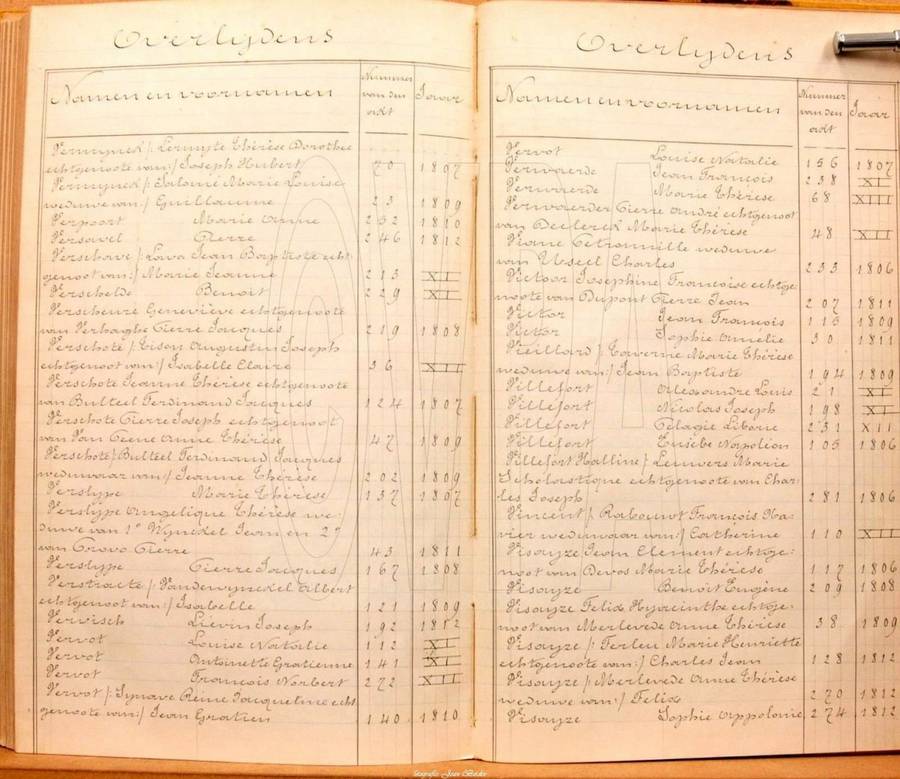 Overlijdens
Namen en voornamen
Nummer van den ackt
Jaar
Vermynck /: Lermyte Thérèse Dorothée
echtgenoote van:/ Joseph Hubert 70 1807
Vermynck /: Salomé Marie Louise
weduwe van:/ Guillaume 23 1809
Verpoort Marie Anne 232 1810
Versavel Pierre 246 1812
Verschave /: Lava Jean Baptiste echt-
genoot van:/ Marie Jeanne 213 XII
Verschelde Benoit 229 XI
Verscheure Geneviève echtgenoote
van Verhaghe Pierre Jacques 219 1808
Verschoté /: Tison Augustin Joseph
echtgenoot van:/ Isabelle Claire 36 XII
Verschoté Jeanne Thérèse echtgenoote
van Bulteel Ferdinand Jacques 124 1807
Verschoté Pierre Joseph echtgenoot
van Van Ceene Anne Thérèse 47 1809
Verschoté /: Bulteel Ferdinand Jacques
weduwaar van:/ Jeanne Thérèse 202 1809
Verslype Marie Thérèse 137 1807
Verslype Angelique Thérèse we-
duwe van 1° Wynckel Jean en 2°
van Crovo Pierre 43 1811
Verslype Pierre Jacques 167 1808
Verstraete /: Vandewynckel Albert
echtgenoot van:/ Isabelle 121 1809
Vervisch Liévin Joseph 192 1812
Vervot Louise Natalie 112 XI
Vervot Antoinette Gratienne 141 XI
Vervot François Norbert 272 XII
Vervot /: Synave Reine Jacqueline echt-
genoote van:/ Jean Gratien 140 1810
Overlijdens
Namen en voornamen
Nummer van den ackt
Jaar
Vervot Louise Natalie 156 1807
Verwaerde Jean François 238 XI
Verwaerde Marie Thérèse 68 XIII
Verwaerder Pierre André echtgenoot
van Declerck Marie Thérèse 48 XII
Viane Petronnille weduwe
van Usseel Charles 233 1806
Victoor Josephine Françoise echtge-
noote van Dupont Pierre Jean 207 1811
Victor Jean François 115 1809
Victor Sophie Amélie 30 1811
Vieillard /: Taverne Marie Thérèse
weduwe van:/ Jean Baptiste 194 1809
Villefort Alexandre Louis 21 XI
Villefort Nicolas Joseph 198 XI
Villefort Pélagie Liborie 231 XII
Villefort Eusèbe Napoléon 105 1806
Villefort Halline /: Leuwers Marie
Scholastique echtgenoote van Char-
les Joseph 281 1806
Vincent /: Rabouwt François Xa-
vier weduwaar van:/ Catherine 110 XII
Visayze Jean Clement echtge-
noot van Devos Marie Thérèse 117 1806
Visayze Benoit Eugène 209 1808
Visayze Felix Hyacinthe echtge-
noot van Merlevede Anne Thérèse 38 1809
Visayze /: Ferleu Marie Henriette
echtgenoote van:/ Charles Jean 128 1812
Visayze /: Merlevede Anne Thérèse
weduwe van:/ Felix 270 1812
Visayze Sophie Appolonie 274 1812